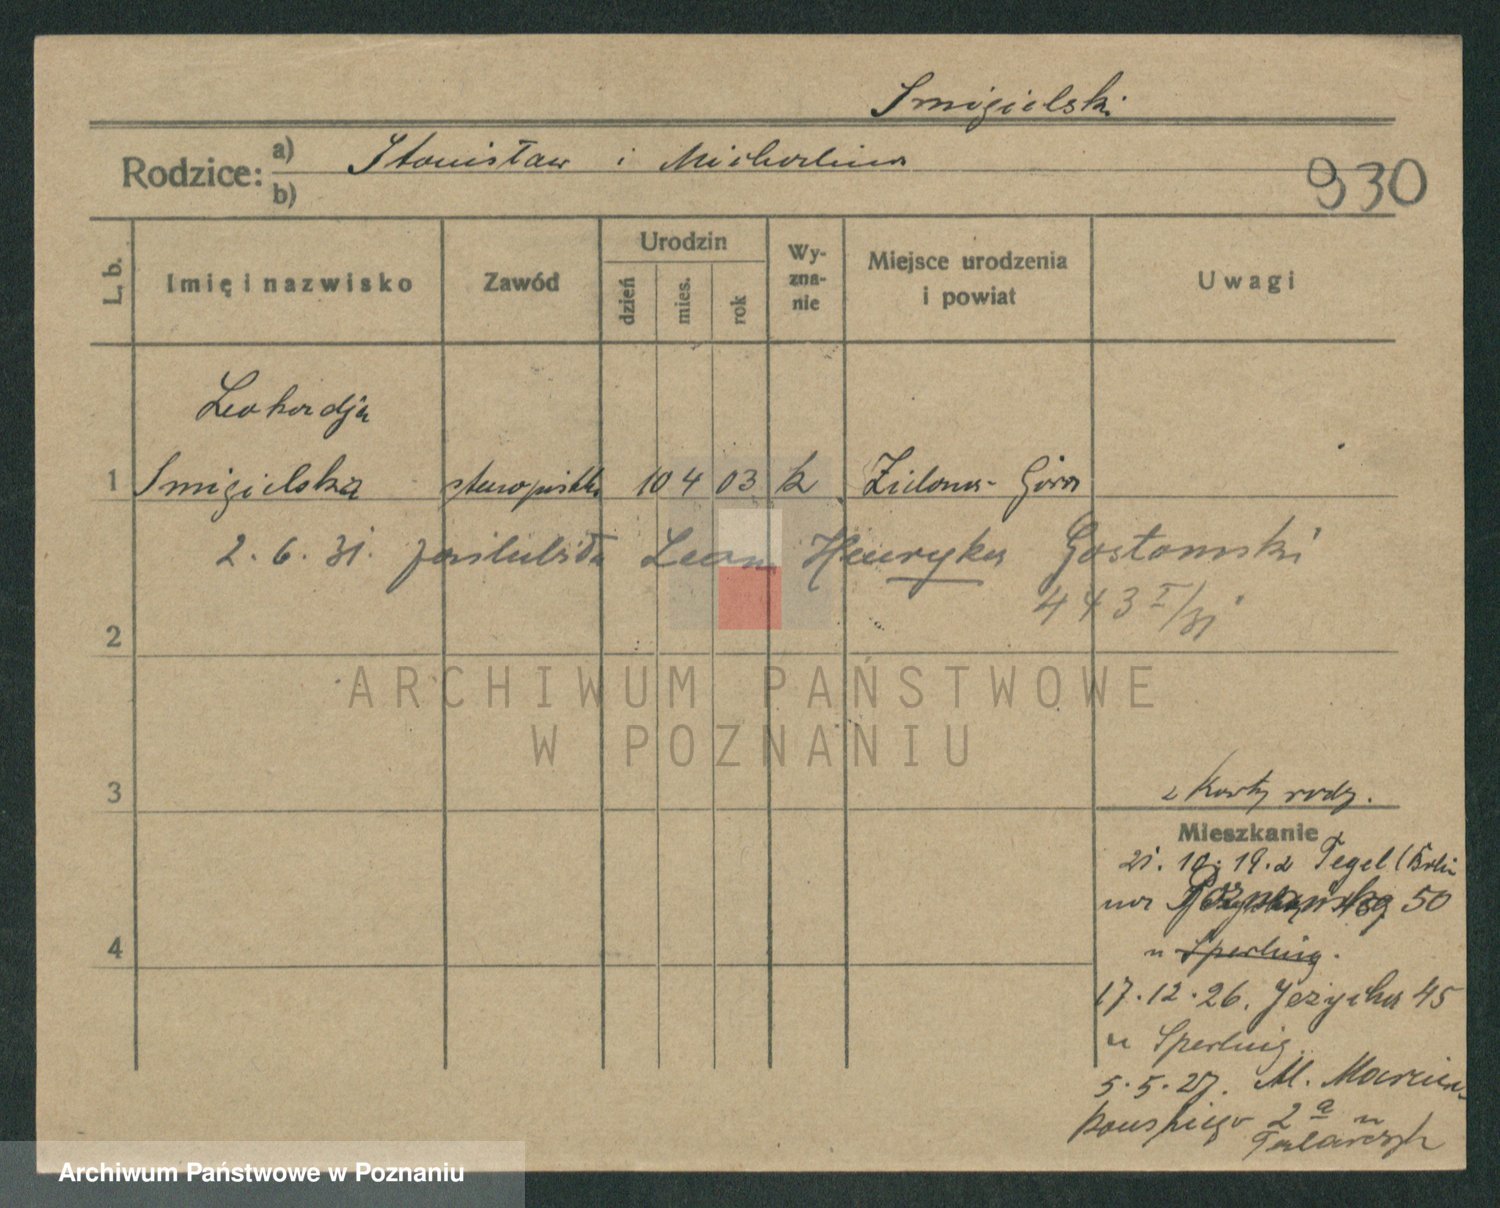 Smigielski
Rodzice: a) Stanisław i Michalina
b)
930
L. b.
Imię i nazwisko
Zawód
Urodzin
dzień
mies.
rok
Wy-
zna-
nie
Miejsce urodzenia
i powiat
Uwagi
Leokardja
1 Smigielska 10 4 03 k Zielona-Góra
2. 6. 31. zaślubiła Leon Henryka Gostomski
443 I/31
2
3
z Karty rodz.
Mieszkanie
21. 10. 19. z Tegel (Berlin
na 50
u Sperling.
4
17.12.26. Jeżycka 45
u Sperling.
5.5.27. M. Marcin-
kowskiego 2a u
ARCHIWUM PAŃSTWOWE
W POZNANIU
Archiwum Państwowe w Poznaniu